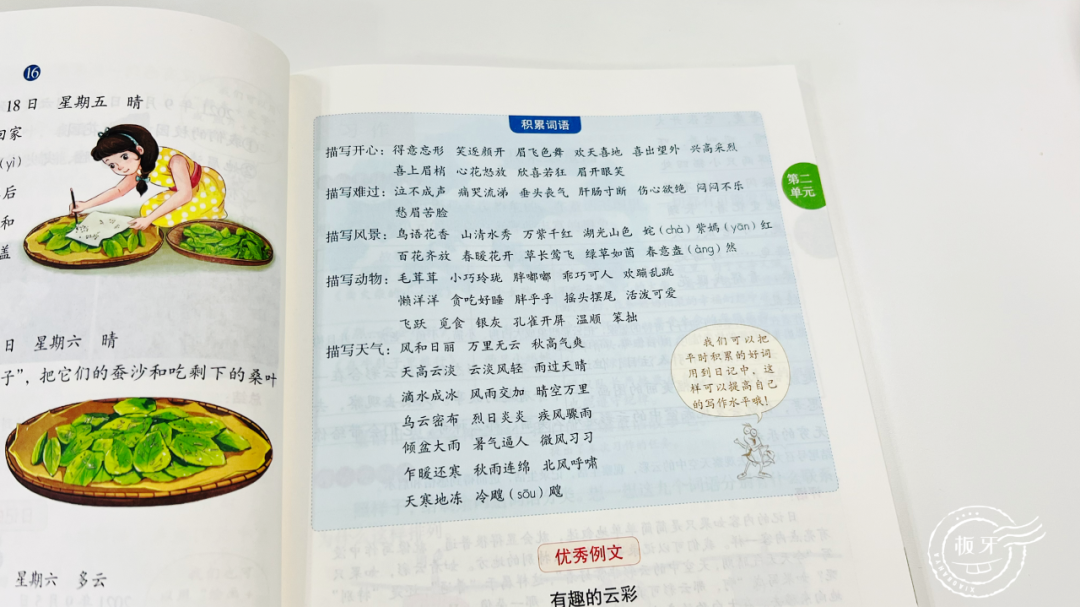 16
18日 星期五 晴
回家
(yì)
后
和
盖
日 星期六 晴
子”，把它们的蚕沙和吃剩下的桑叶
星期六 多云
积累词语
描写开心：得意忘形 笑逐颜开 眉飞色舞 欢天喜地 喜出望外 兴高采烈
喜上眉梢 心花怒放 欣喜若狂 眉开眼笑
描写难过：泣不成声 痛哭流涕 垂头丧气 肝肠寸断 伤心欲绝 闷闷不乐
愁眉苦脸
描写风景：鸟语花香 山清水秀 万紫千红 湖光山色 姹(chà)紫嫣(yān)红
百花齐放 春暖花开 草长莺飞 绿草如茵 春意盎(àng)然
描写动物：毛茸茸 小巧玲珑 胖嘟嘟 乖巧可人 欢蹦乱跳
懒洋洋 贪吃好睡 胖乎乎 摇头摆尾 活泼可爱
飞跃 觅食 银灰 孔雀开屏 温顺 笨拙
描写天气：风和日丽 万里无云 秋高气爽
天高云淡 云淡风轻 雨过天晴
滴水成冰 风雨交加 晴空万里
乌云密布 烈日炎炎 疾风骤雨
倾盆大雨 暑气逼人 微风习习
乍暖还寒 秋雨连绵 北风呼啸
天寒地冻 冷飕(sōu)飕
我们可以把
平时积累的好词
用到日记中，这
样可以提高自己
的写作水平哦！
第二
单元
优秀例文
有趣的云彩
板牙